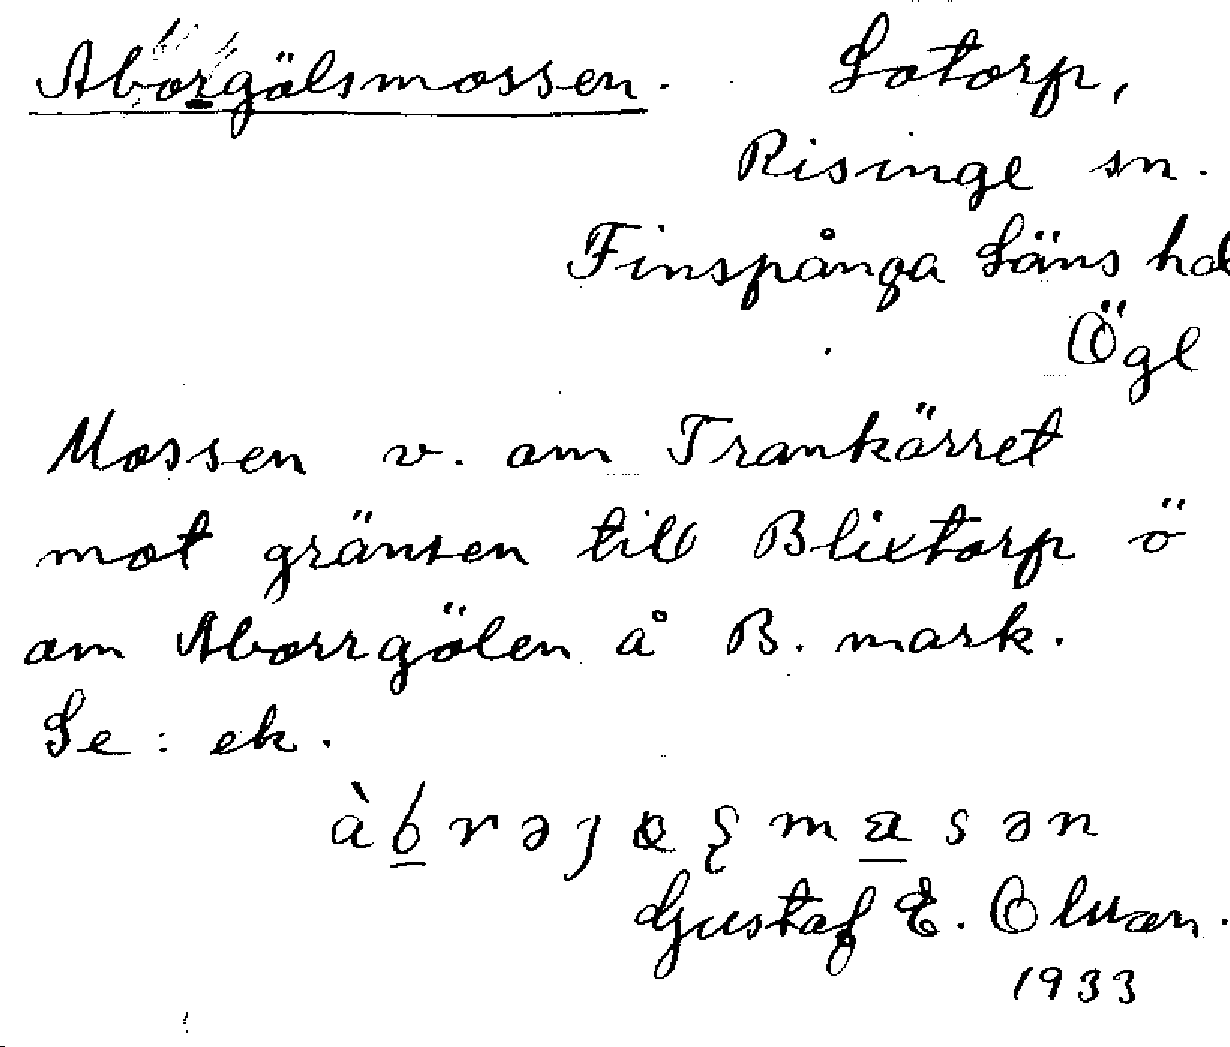 Aborgölsmossen. Lotorp,
Risinge sn.
Finspånga Läns hd
Ögl
Mossen v. om Trankärret
mot gränsen till Blixtorp ö
om Aborrgölen å B. mark.
Se: ek.
Gustaf E. Olsson.
1933